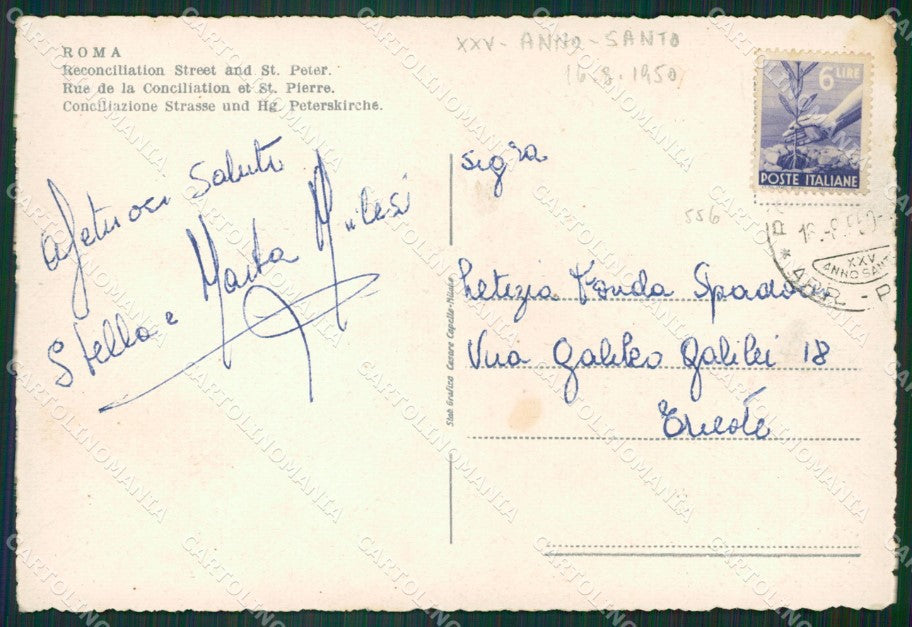 ROMA
Reconciliation Street and St. Peter.
Rue de la Conciliation et St. Pierre.
Conciliazione Strasse und Hg. Peterskirche.
XXV - ANNO - SANTO
16.8.1950
6 LIRE
POSTE ITALIANE
XXV
ANNO SANT
556
Affetuosi Saluti
Stella e Marta
Sig ra
Letizia Fonda Spadon
Via Galileo Galilei 18
Trieste
Stab. Grafico Cesare Capello - Milano
CARTOLINOMANIA